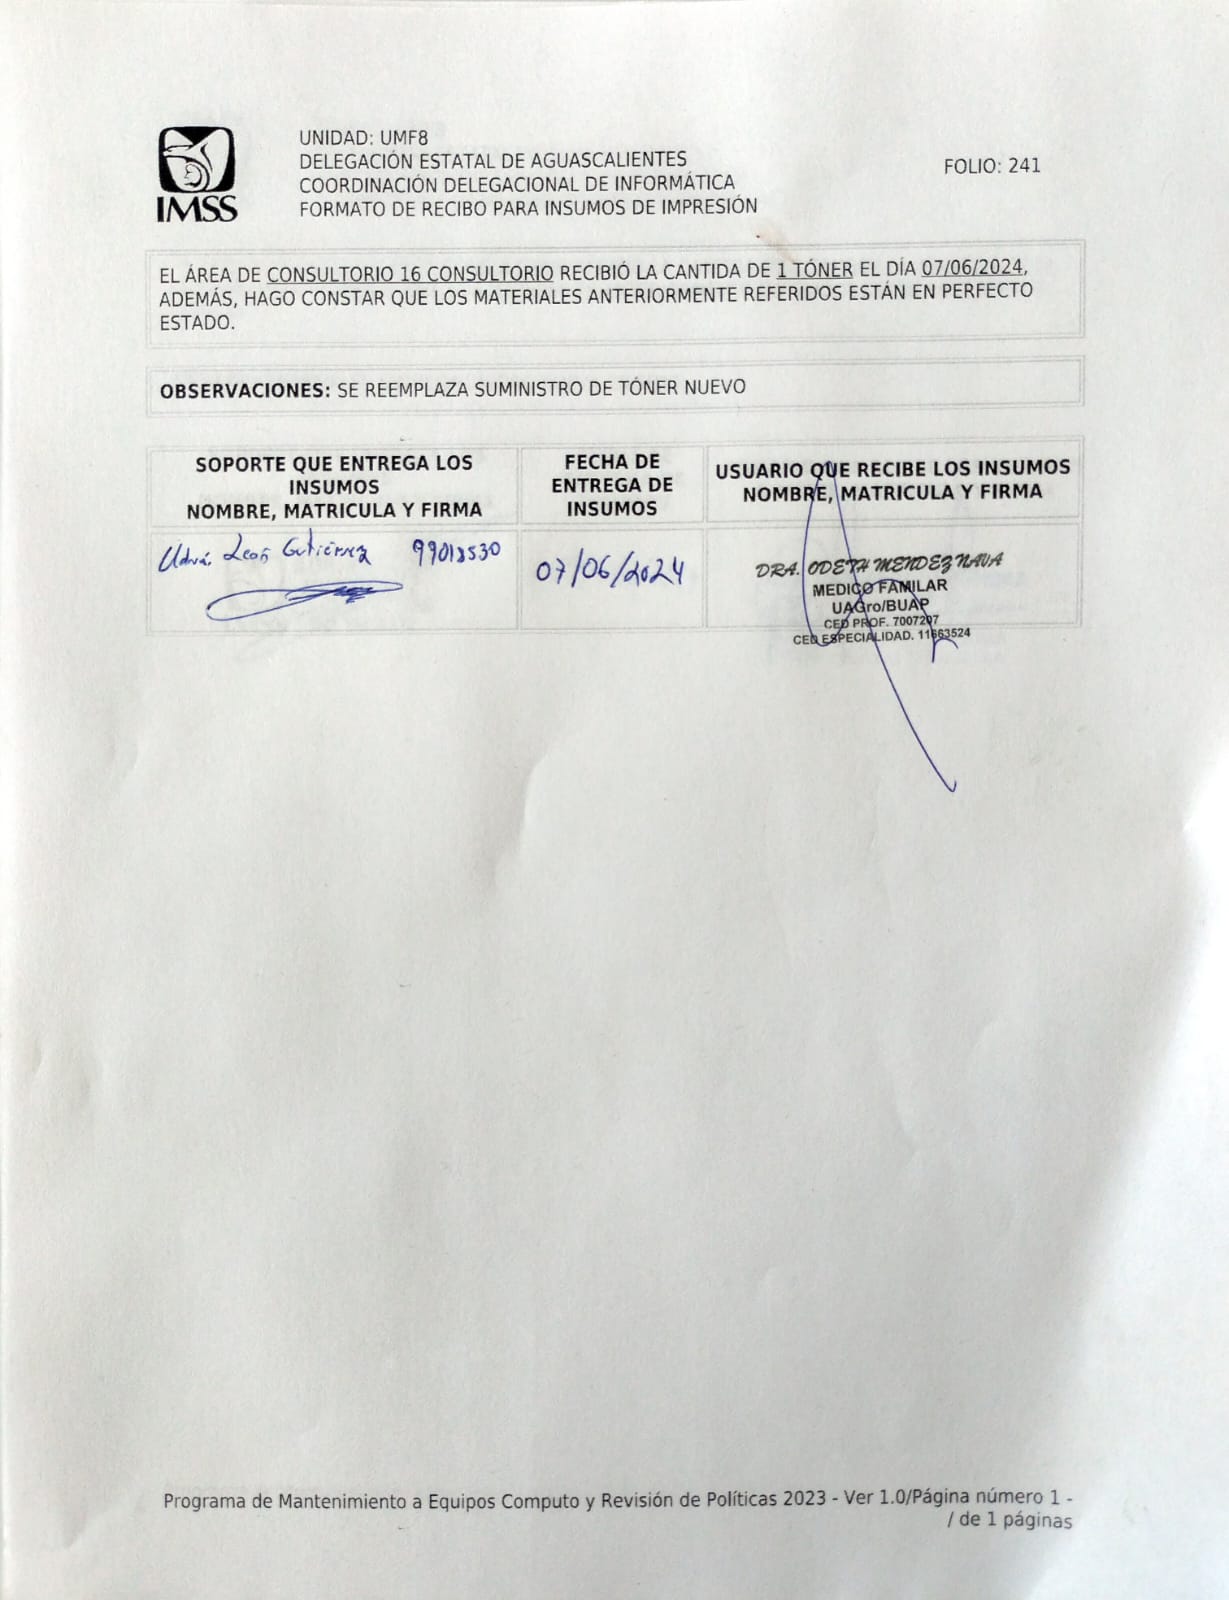 IMSS
UNIDAD: UMF8
DELEGACIÓN ESTATAL DE AGUASCALIENTES
COORDINACIÓN DELEGACIONAL DE INFORMÁTICA
FORMATO DE RECIBO PARA INSUMOS DE IMPRESIÓN
FOLIO: 241
EL ÁREA DE CONSULTORIO 16 CONSULTORIO RECIBIÓ LA CANTIDA DE 1 TÓNER EL DÍA 07/06/2024,
ADEMÁS, HAGO CONSTAR QUE LOS MATERIALES ANTERIORMENTE REFERIDOS ESTÁN EN PERFECTO
ESTADO.
OBSERVACIONES: SE REEMPLAZA SUMINISTRO DE TÓNER NUEVO
SOPORTE QUE ENTREGA LOS
INSUMOS
NOMBRE, MATRICULA Y FIRMA
FECHA DE
ENTREGA DE
INSUMOS
USUARIO QUE RECIBE LOS INSUMOS
NOMBRE, MATRICULA Y FIRMA
León Gutiérrez 99013530
07/06/2024
DRA. ODETH MENDEZ NAVA
MEDICO FAMILAR
UAGro/BUAP
CED PROF. 7007207
CED ESPECIALIDAD. 11663524
Programa de Mantenimiento a Equipos Computo y Revisión de Políticas 2023 - Ver 1.0/Página número 1 -
/ de 1 páginas